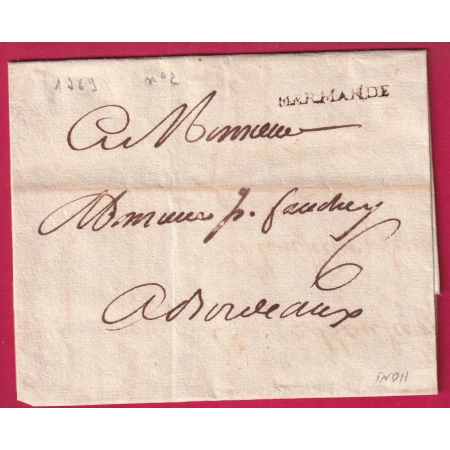 1769 n°2
MARMANDE
A Monsieur
Monsieur p. Gaudrey
6
A Bordeaux